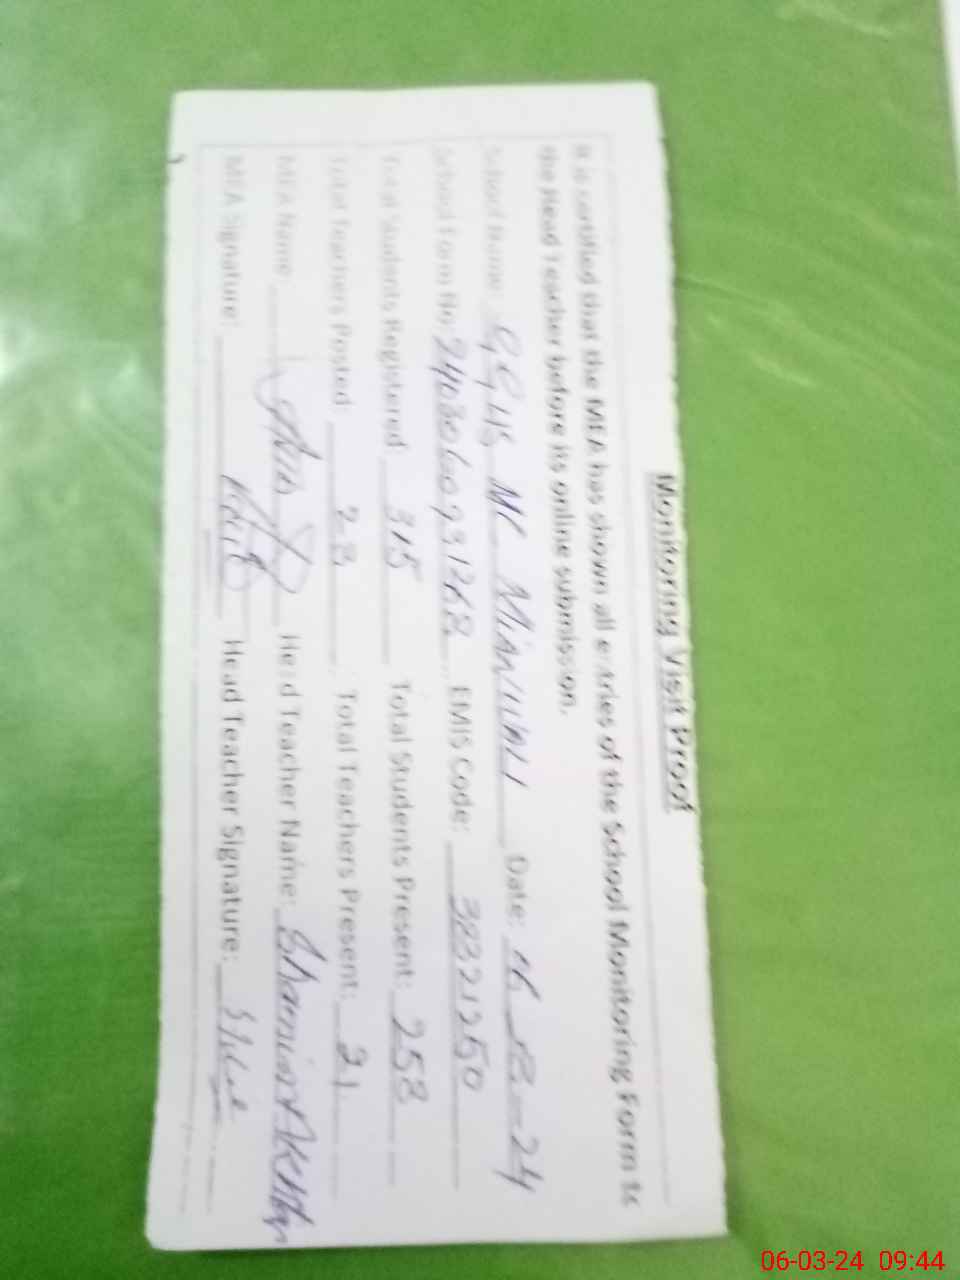 Monitoring Visit Proof
It is certified that the MEA has shown all entries of the School Monitoring Form to
the Head Teacher before its online submission.
School Name: GGHS MC MIANWALI Date: 06-03-24
School Form No: EMIS Code: 38321250
Total Students Registered: 315 Total Students Present: 258
Total Teachers Posted: 23 Total Teachers Present: 21
MEA Name: Head Teacher Name: Shamim Akhtar
MEA Signature: Head Teacher Signature:
06-03-24 09:44